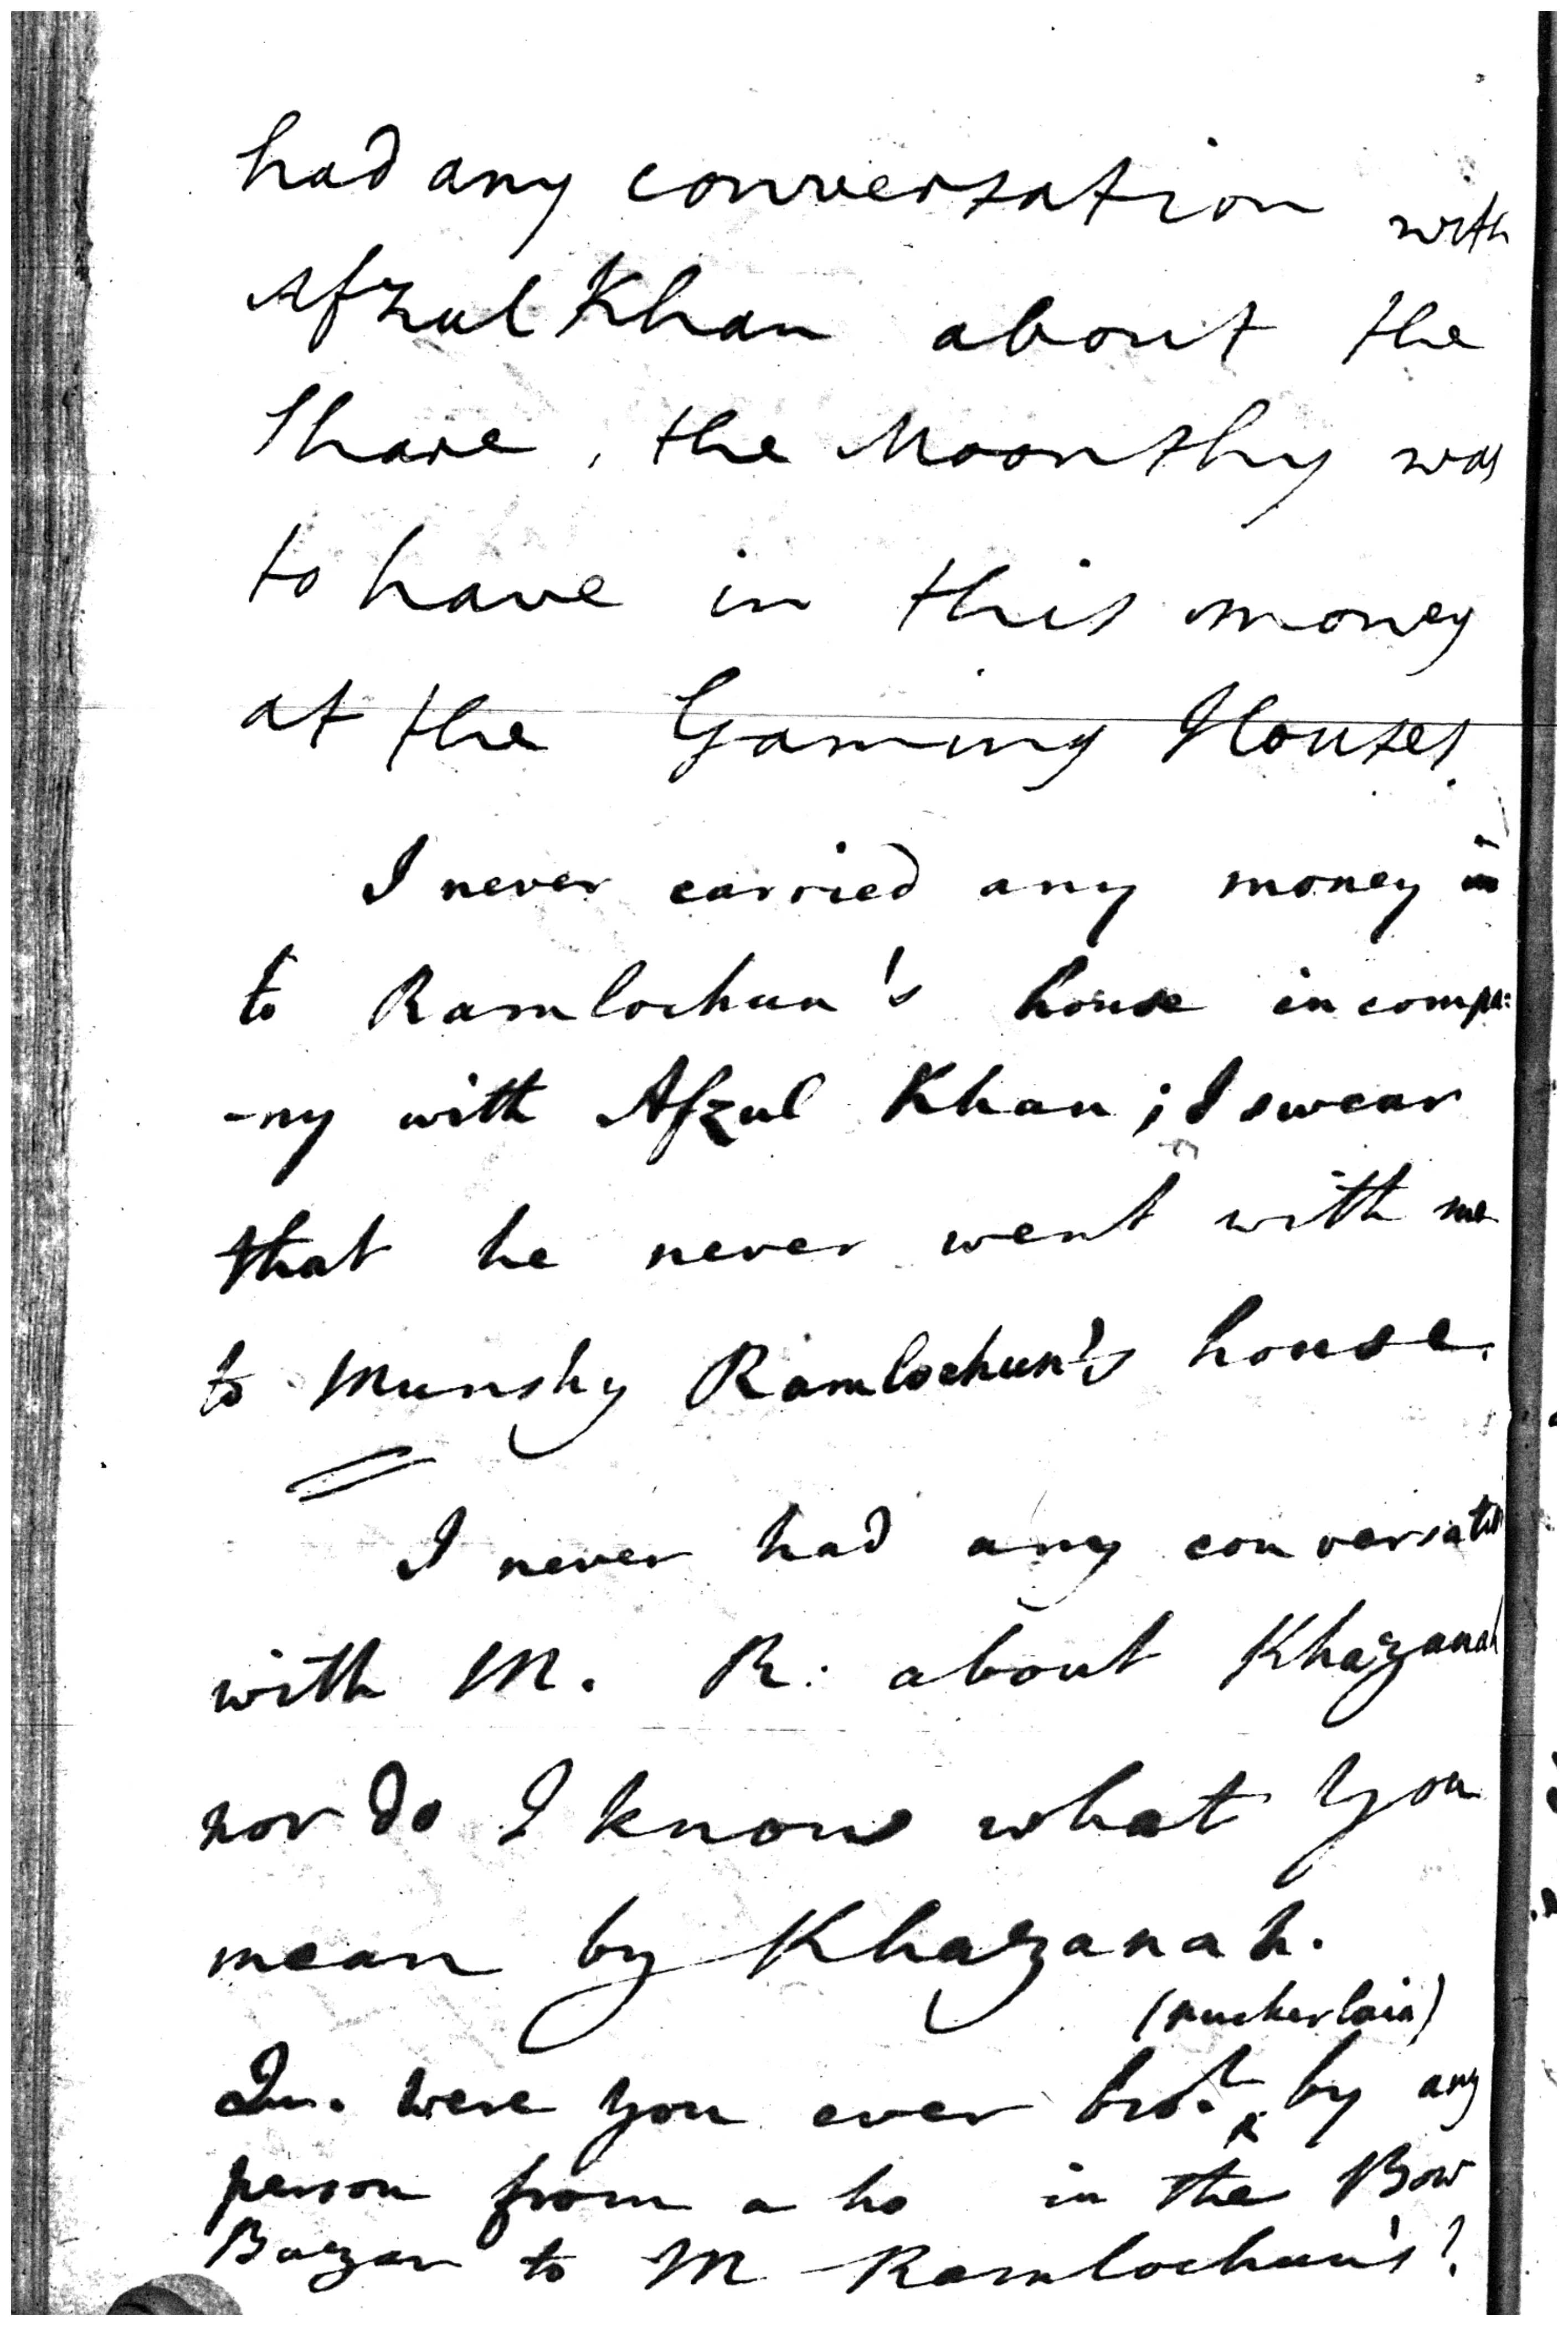 had any conversation with
Afzul Khan about the
Share, the Moonshy was
to have in this money
at the Gaming Houses.
I never carried any money in
to Ramlochun's house in compa=
-ny with Afzul Khan; I swear
that he never went with me
to Munshy Ramlochun's house.
I never had any conversation
with M. R. about Khazanah
nor do I know what you
mean by Khazanah.
Qu. were you ever brot. by any
person from a ho in the Bow
Bazar to M Ramlochun's?